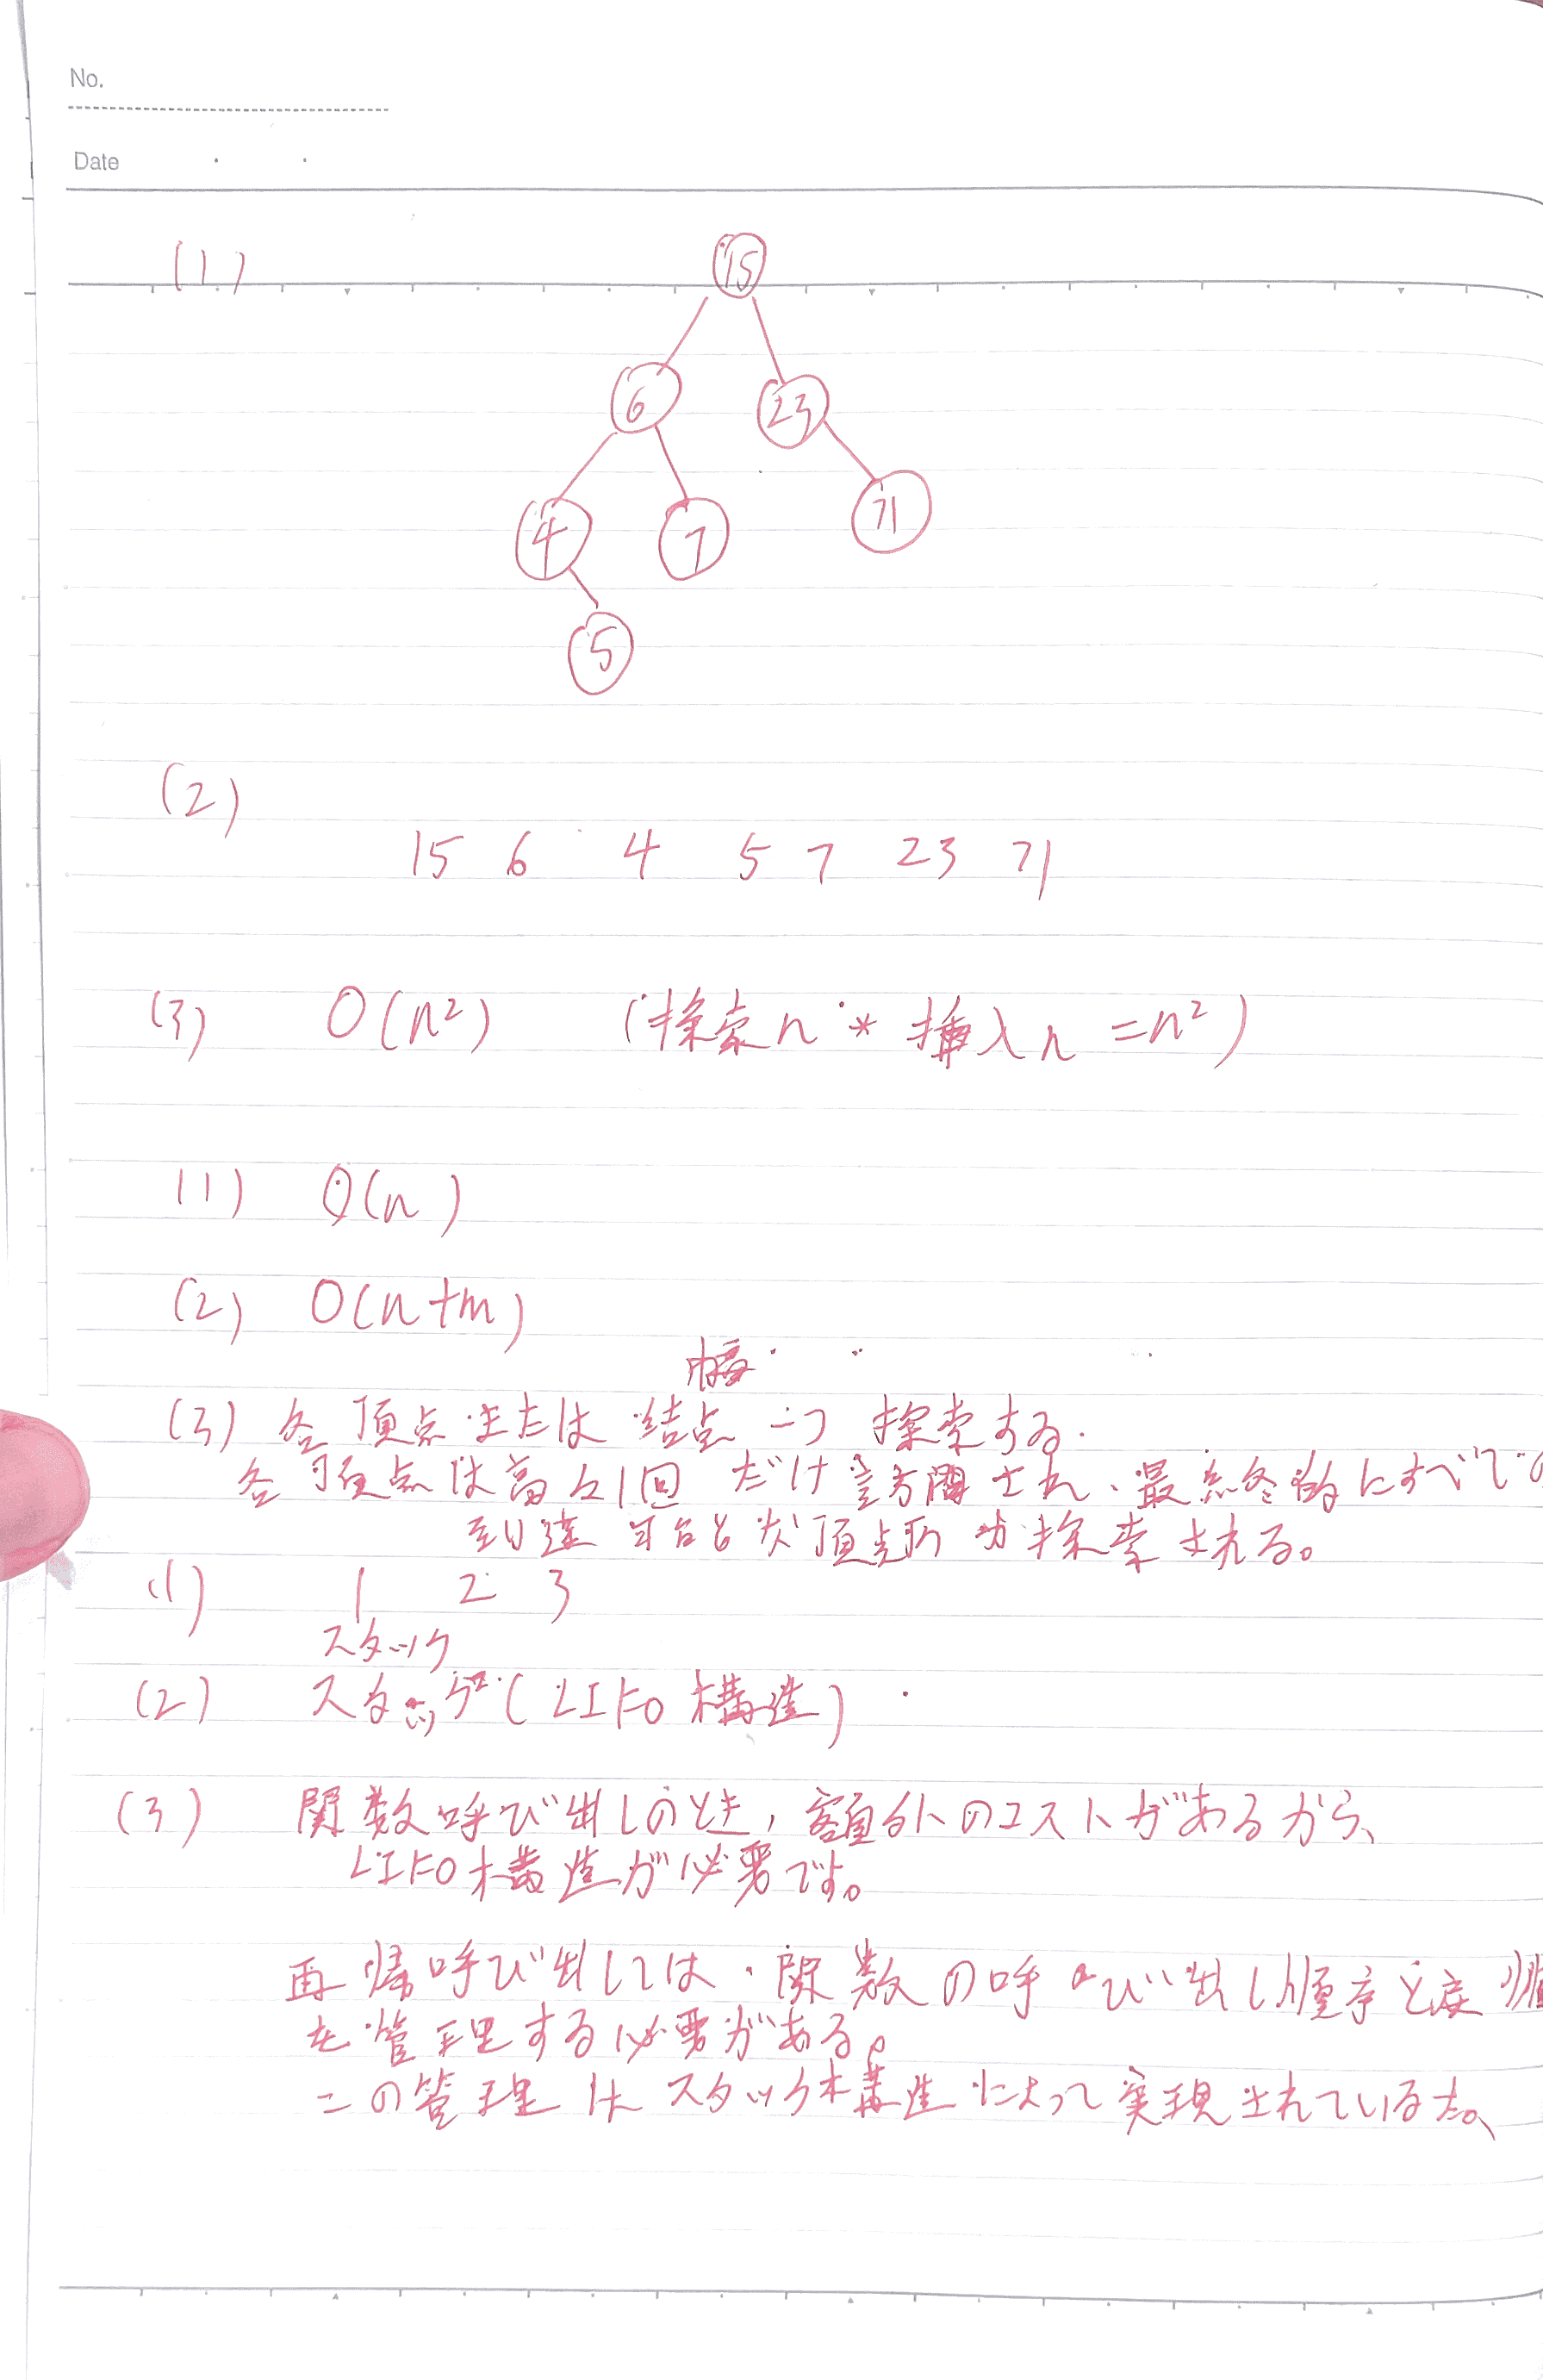 No.
Date
(1)
15
6 23
4 7 71
5
(2)
15 6 4 5 7 23 71
(3) O(n²) (探索n * 挿入n = n²)
(1) O(n)
(2) O(n+m)
幅
(3) 各頂点または結点一つ探索する.
各頂点は高々1回だけ訪問され、最終的にすべての
到達可能な頂点が探索される。
(1) 1 2 3
スタック
(2) スタック(LIFO構造)
(3) 関数呼び出しのとき,額外のコストがあるから、
LIFO構造が必要です。
再帰呼び出しでは、関数の呼び出し順序と戻り順
を管理する必要がある。
この管理はスタック構造によって実現されている